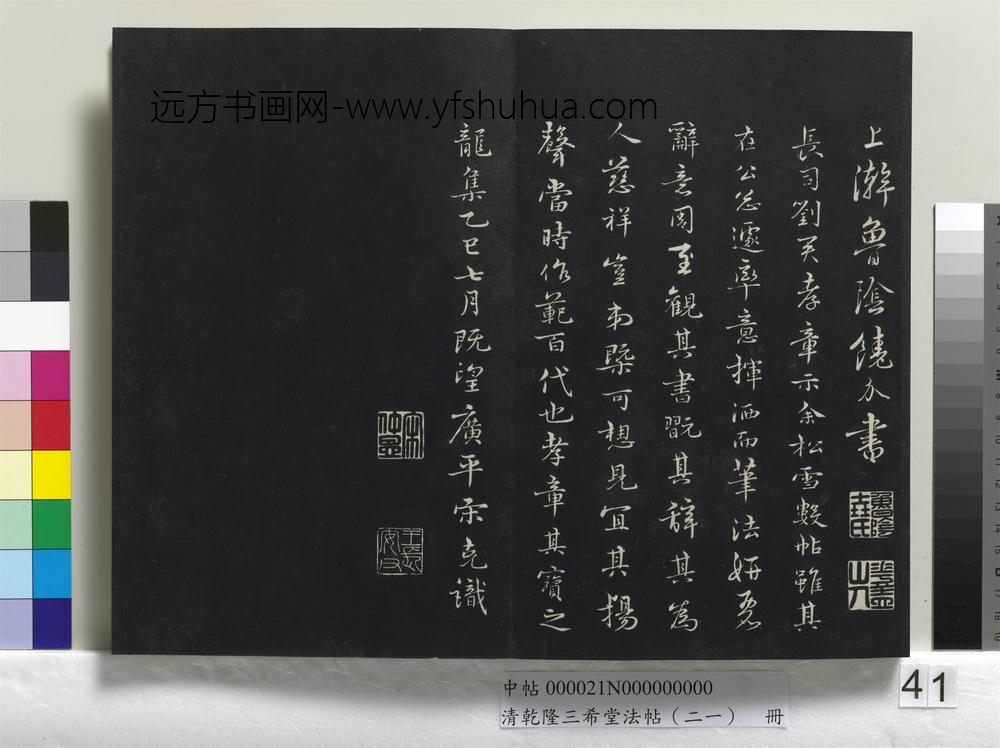 远方书画网-www.yfshuhua.com
上澣魯陰饒介書
長司劉君孝章示余松雪數帖雖其
在公怱遽率意揮洒而筆法妍麗
辭意周至觀其書翫其辞其為
人慈祥豈弟槩可想見宜其揚
聲當時作範百代也孝章其寶之
龍集乙巳七月既望廣平宋克識
宋仲溫
中帖 000021N000000000
清乾隆三希堂法帖（二一） 冊
41